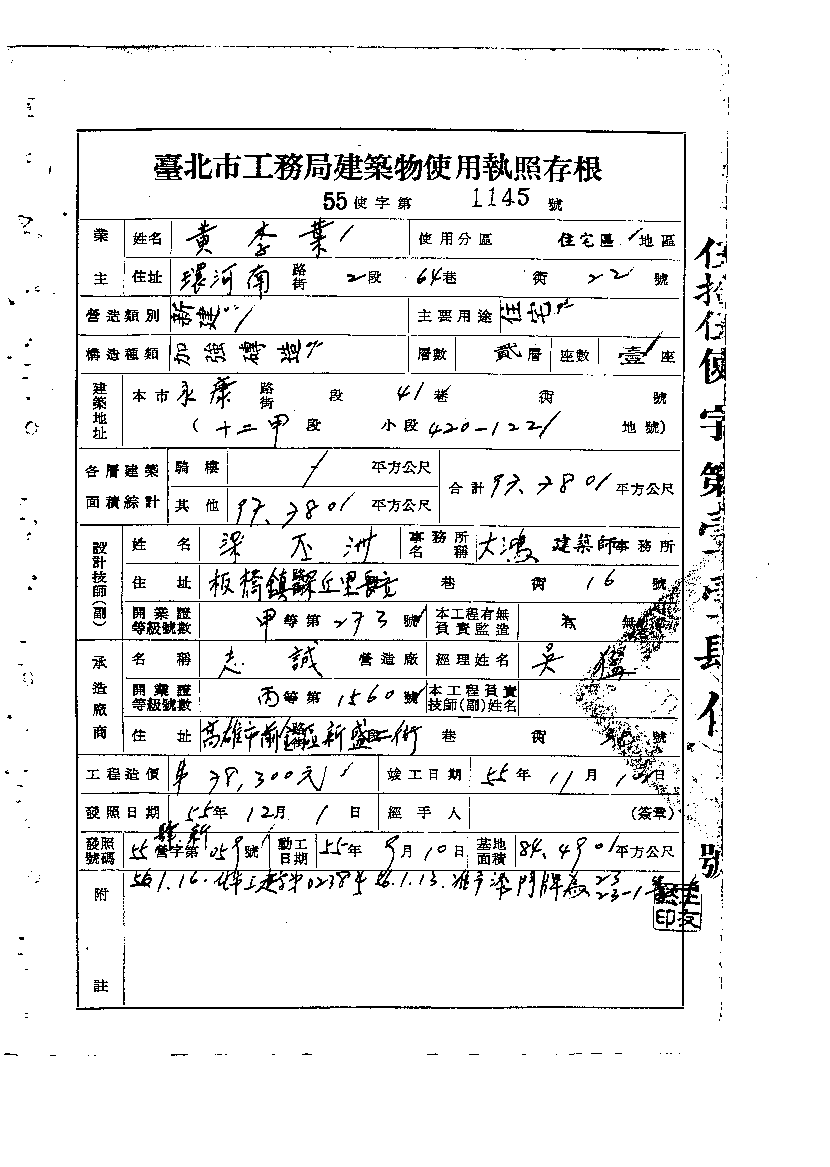 臺北市工務局建築物使用執照存根
55使字第 1145 號
業主 姓名 黃李葉 使用分區 住宅區 地區
住址 環河南 路街 2段 64巷 街 22 號
營造類別 新建 主要用途 住宅
構造種類 加強磚造 層數 貳層 座數 壹座
建築地址 本市永康 路街 段 41巷 街 號
(十二甲段 小段 420-122 地號)
各層建築面積綜計 騎樓 / 平方公尺 合計 97.780 平方公尺
其他 97.780 平方公尺
設計技師(副) 姓名 梁丕洲 事務所名稱 大鴻建築師事務所
住址 板橋鎮 丘里 巷 街 16 號
開業證等級號數 甲等第273號 本工程有無負責監造 有 無
承造廠商 名稱 志誠 營造廠 經理姓名 吳猛
開業證等級號數 丙等第1560號 本工程負責技師(副)姓名
住址 高雄市前鎮區新盛二街 巷 街 號
工程造價 $78,300元 竣工日期 55年11月10日
發照日期 55年12月1日 經手人 (簽章)
發照號碼 55營字第059號 動工日期 55年9月10日 基地面積 84.490平方公尺
附註 56.1.16. 字第0238 56.1.13. 門牌為 23 23-1
伍拾伍使字第壹壹肆伍號